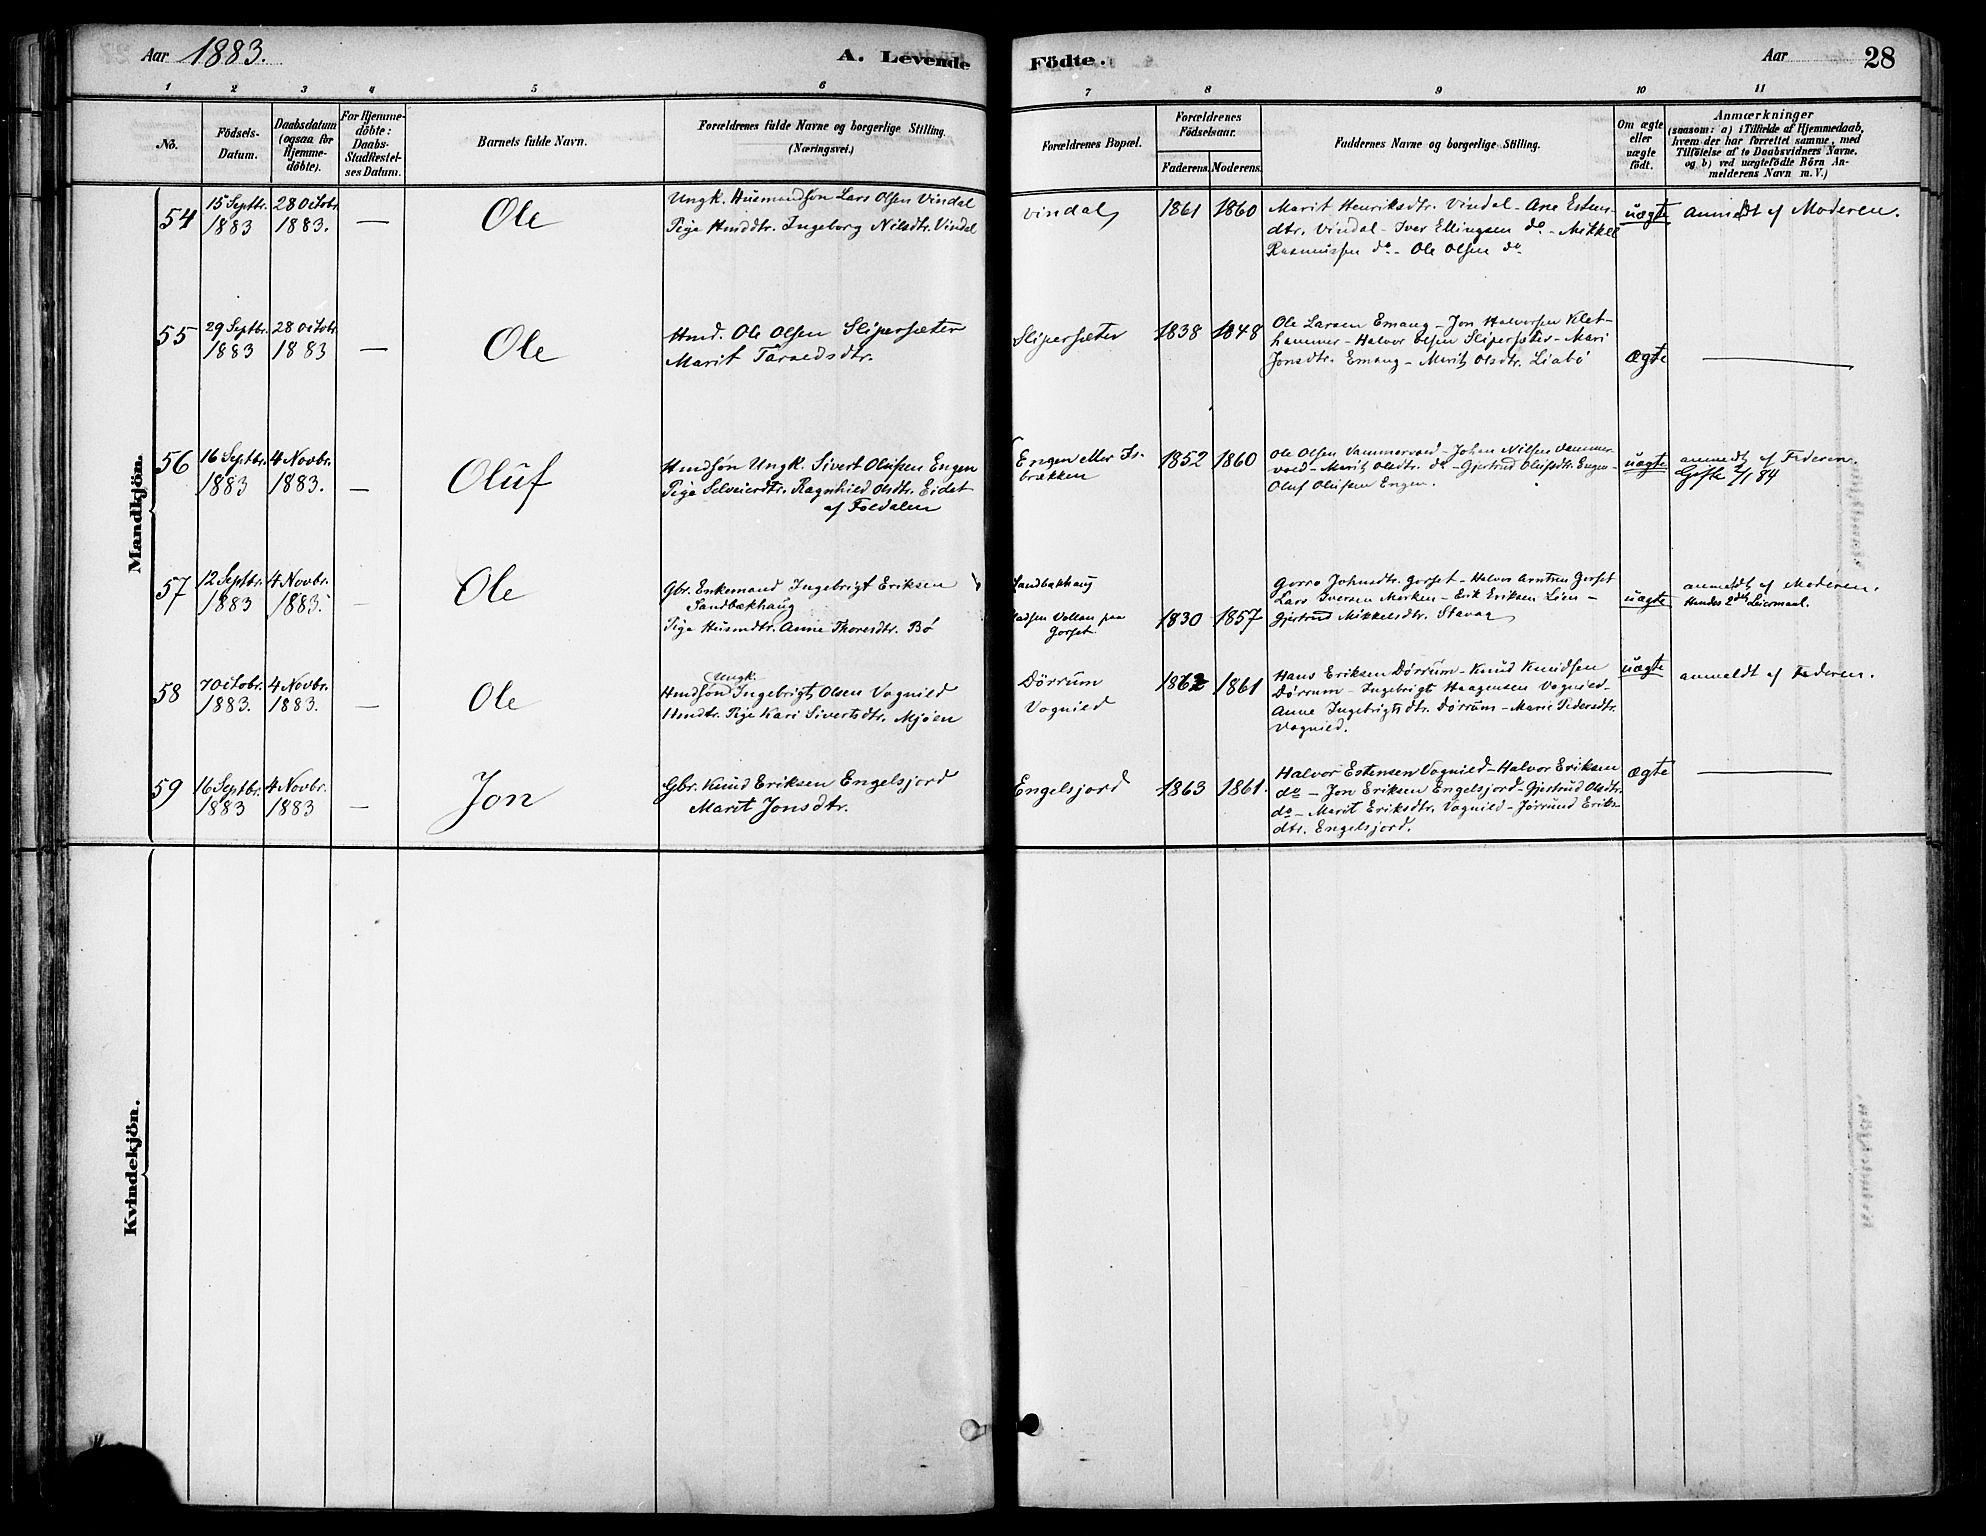 Aar 1883.
A. Levende
Födte.
Aar
28
1 2 3 4 5 6 7 8 9 10 11
No.
Födsels-
Datum.
Daabsdatum
(ogsaa for
Hjemme-
döbte).
For Hjemme-
döbte:
Daabs-
Stadfæstel-
ses Datum.
Barnets fulde Navn.
Forældrenes fulde Navne og borgerlige Stilling.
(Næringsvei.)
Forældrenes Bopæl.
Forældrenes
Födselsaar.
Faderens. Moderens.
Faddernes Navne og borgerlige Stilling.
Om ægte
eller
uægte
födt.
Anmærkninger
(saasom: a) i Tilfælde af Hjemmedaab,
hvem der har forrettet samme, med
Tilföielse af to Daabsvidners Navne,
og b) ved uægtefödte Börn An-
melderens Navn m. V.)
Mandkjön.
54
15 Septbr.
1883
28 Octobr.
1883.
—
Ole
Ungk. Husmandsøn Lars Olsen Vindal
Pige Husmdtr. Ingeborg Nilsdtr. Vindal
Vindal
1861 1860
Marit Henriksdtr. Vindal - Ane Estens-
dtr. Vindal - Iver Ellingsen do - Mikkel
Rasmussen do - Ole Olsen do
uægte
anmeldt af Moderen.
55
29 Septbr.
1883
28 Octobr.
1883
—
Ole
Hmd. Ole Olsen Slipersæter
Marit Taraldsdtr.
Slipersæter
1838 1848
Ole Larsen Emaug - Jon Halvorsen Klet-
hammer - Halvor Olsen Slipersæter - Mari
Jonsdtr. Emaug - Marit Olsdtr. Liabö
ægte
56
16 Septbr.
1883
4 Novbr.
1883.
—
Oluf
Hmdsøn Ungk. Sivert Olufsen Engen
Pige Selveierdtr. Ragnhild Olsdtr. Eidet
af Foldalen
Engen eller Is-
brækken
1852 1860
Ole Olsen Vammervold - Johan Nilsen Vammer-
vold - Marit Olsdtr. do - Gjertrud Olufsdtr. Engen -
Oluf Olufsen Engen.
uægte
anmeldt af Faderen.
Gifte 2/1 84
57
12 Septbr.
1883
4 Novbr.
1883.
—
Ole
Gbr. Enkemand Ingebrigt Eriksen
Sandbækhaug
Pige Husmdtr. Anne Thoresdtr. Bö
Sandbækhaug
Pladsen Vollan paa
Gorset
1830 1857
Gorro Johnsdtr. Gorset - Halvor Arntsen Gorset
Lars Iversen Merken - Erik Eriksen Lien -
Gjertrud Mikkelsdtr. Stavaa
uægte
anmeldt af Moderen.
Hendes 2det Leiermaal.
58
7 Octobr.
1883.
4 Novbr.
1883.
—
Ole
Ungk.
Hmdsøn Ingebrigt Olsen Vognild
Hmdtr. Pige Kari Sivertsdtr. Mjöen
Dørrum
Vognild
1862 1861
Hans Eriksen Dørrum - Knud Knudsen
Dørrum - Ingebrigt Haagensen Vognild -
Anne Ingebrigtsdtr. Dørrum - Marie Pedersdtr.
Vognild.
uægte
anmeldt af Faderen.
59
16 Septbr.
1883
4 Novbr.
1883
—
Jon
Gbr. Knud Eriksen Engelsjord
Marit Jonsdtr.
Engelsjord
1863 1861.
Halvor Estensen Vognild - Halvor Eriksen
do - Jon Eriksen Engelsjord - Gjertrud Olsdtr.
do - Marit Eriksdtr. Vognild - Jørund Eriks-
dtr. Engelsjord.
ægte
Kvindekjön.